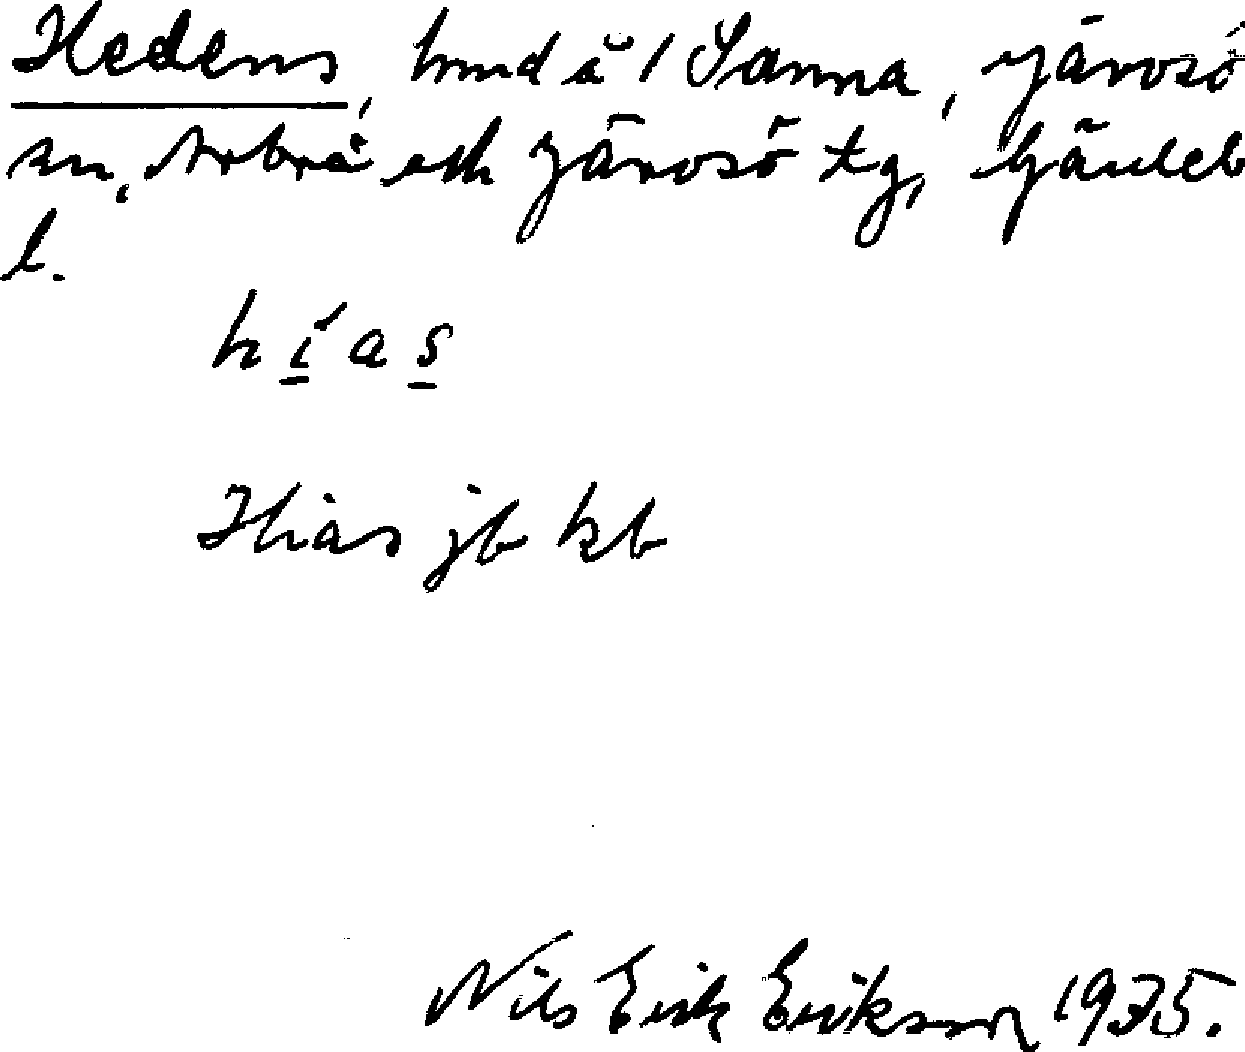 Hedens, hmd å 1 Sanna, Järvsö
sn, Arbrå och Järvsö tg, Gävleb
l.
h í a s
Hias jb kb
Nils Erik Eriksson 1935.